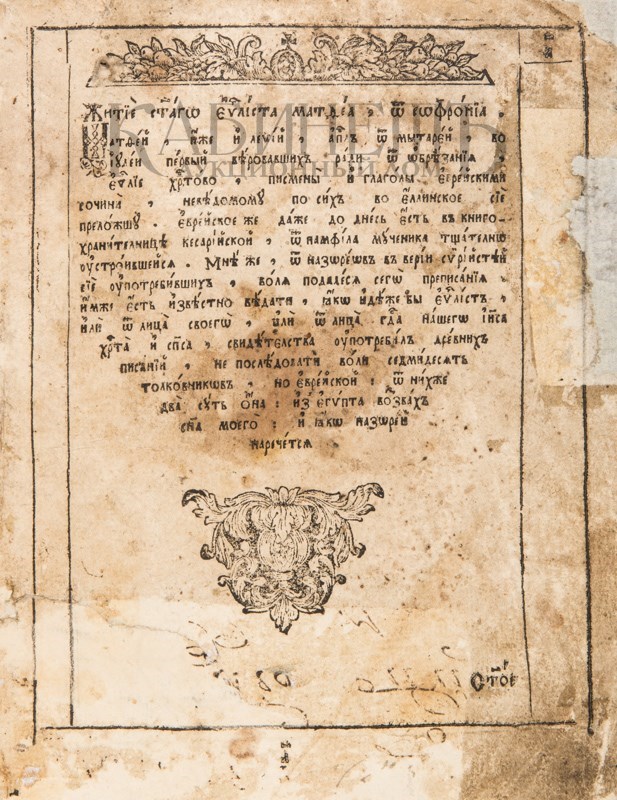 Житїе ст҃агѡ єѵⷢ҇лїста матѳеа, ѿ сѡфронїа,
Матѳей, иже и левїй, ап҃лъ ѿ мытарей во
їꙋдеи первый вѣровавшихъ ради ѿ ѡбрѣзанїа
єѵ҃лїе хрⷭ҇тово, писмены и глаголы єврейскими
сочина, невѣдомому по сихъ во єллинское сїе
преложшу. єврейское же даже до днесь єсть въ книго-
хранителницѣ кесарїйской, ѿ памфїла мученика тщателнѡ
оустроившейся. Мнѣ же, ѿ назѡрєѡвъ въ верїи сѵрїйстѣй
сїе оупотребившихъ, воля подадеся сегѡ преписанїя.
имже єсть извѣстно вѣдати, ꙗкѡ идѣже бы єѵⷢ҇лїстъ,
или ѿ лица своегѡ, или ѿ лица гдⷭ҇а нашегѡ іи҃са
хрⷭ҇та и сп҃са, свидѣтелства оупотребилъ древнихъ
писанїй, не послѣдовати воли седмидесять
толковчникѡвъ, но єврейской: ѿ нихже
два суть ѡна: из єгѵпта воззвахъ
сн҃а моего: и ꙗкѡ назѡрей
наречется
КАБИНЕТЪ
АУКЦИОННЫЙ ДОМ